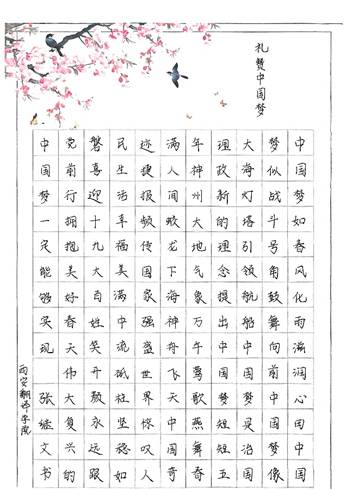 礼赞中国梦
中国梦如春风化雨滋润心田中国
梦似战斗号角鼓舞向前中国梦像
大海灯塔引领航船中国梦是治国
理政新的理念提出中国梦短短五
年神州大地气象万千莺歌燕舞奇
满人间蛟龙下海神舟飞天中国奇
迹捷报频传国家强盛世界惊叹人
民生活幸福美满中流砥柱坚稳如
磐喜迎十九大百姓笑开颜永远跟
党前行拥抱美好春天伟大复兴的
中国梦一定能够实现 张继文书
西安翻译学院